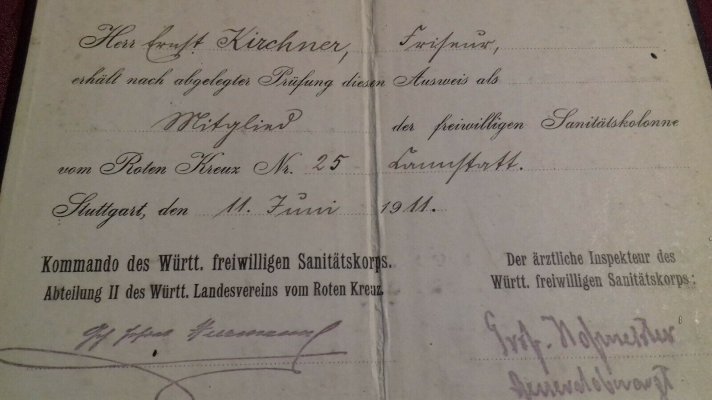 Herr Ernst Kirchner, Friseur,
erhält nach abgelegter Prüfung diesen Ausweis als
Mitglied der freiwilligen Sanitätskolonne
vom Roten Kreuz Nr. 25 Cannstatt.
Stuttgart, den 11. Juni 1911.
Kommando des Württ. freiwilligen Sanitätskorps.
Abteilung II des Württ. Landesvereins vom Roten Kreuz.
Der ärztliche Inspekteur des
Württ. freiwilligen Sanitätskorps:
Prof. Hofmeister